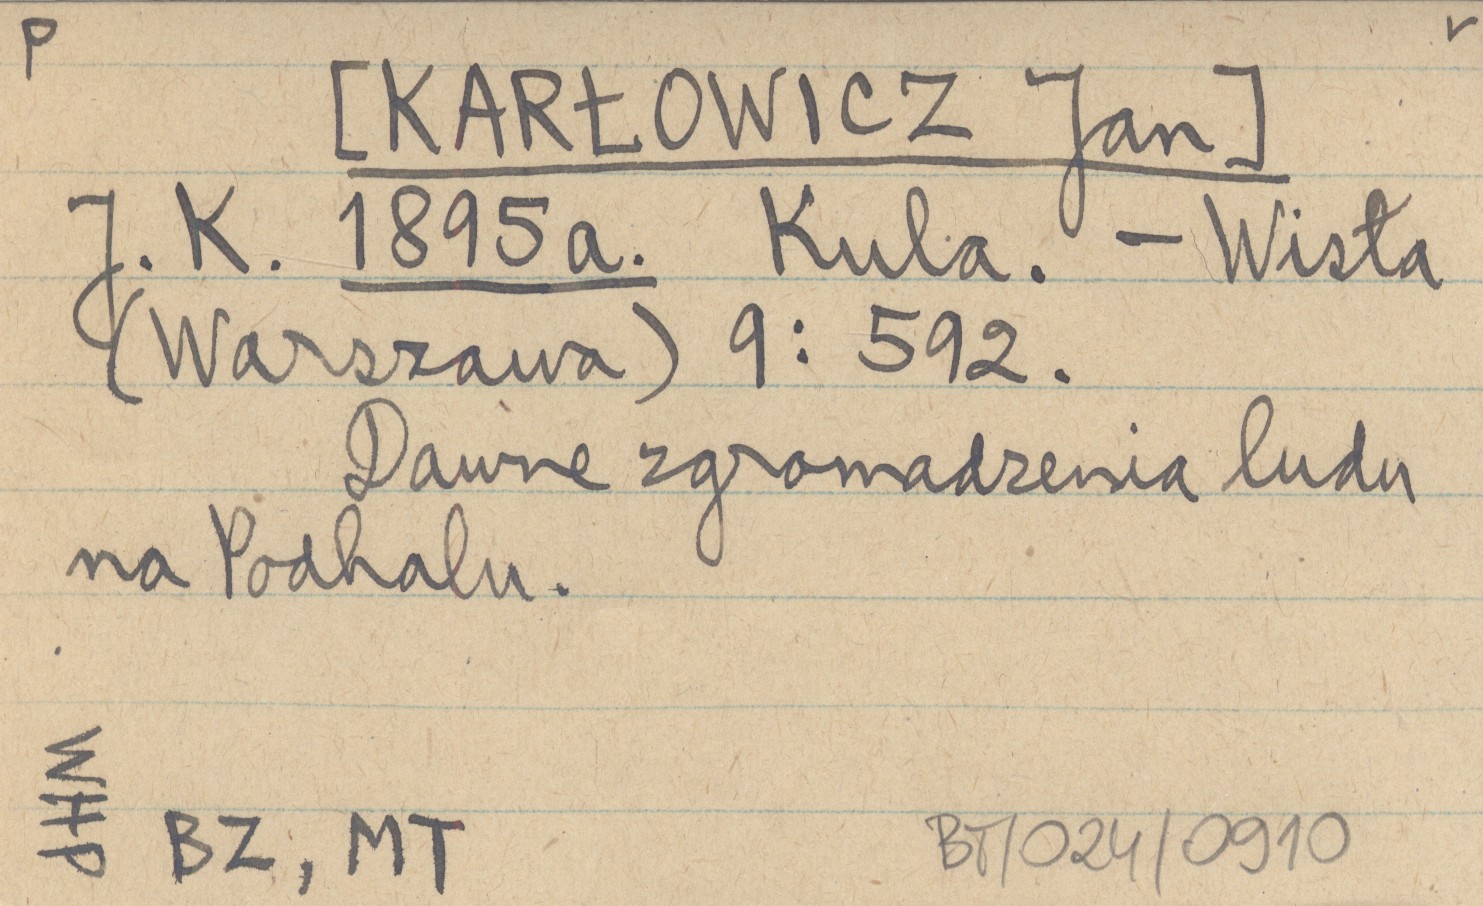 P
[KARŁOWICZ Jan]
J. K. 1895a. Kula. – Wisła
(Warszawa) 9: 592.
Dawne zgromadzenia ludu
na Podhalu.
WHP
BZ, MT
BT/024/0910